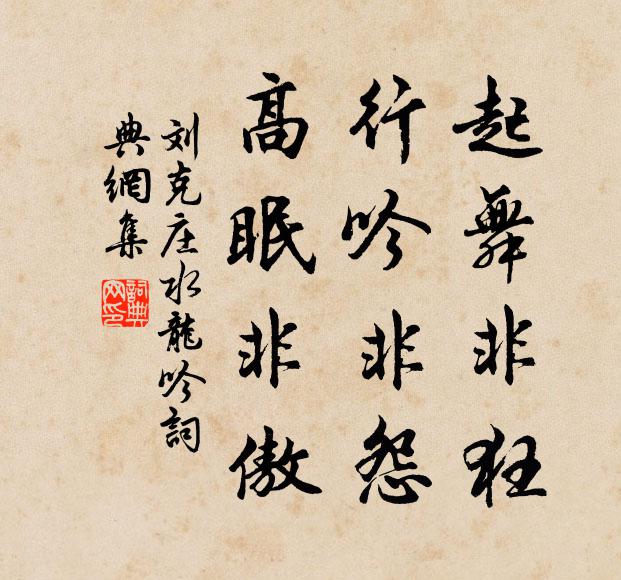 起舞非狂
行吟非怨
高眠非傲
刘克庄水龍吟詞
典網集
詞典网印